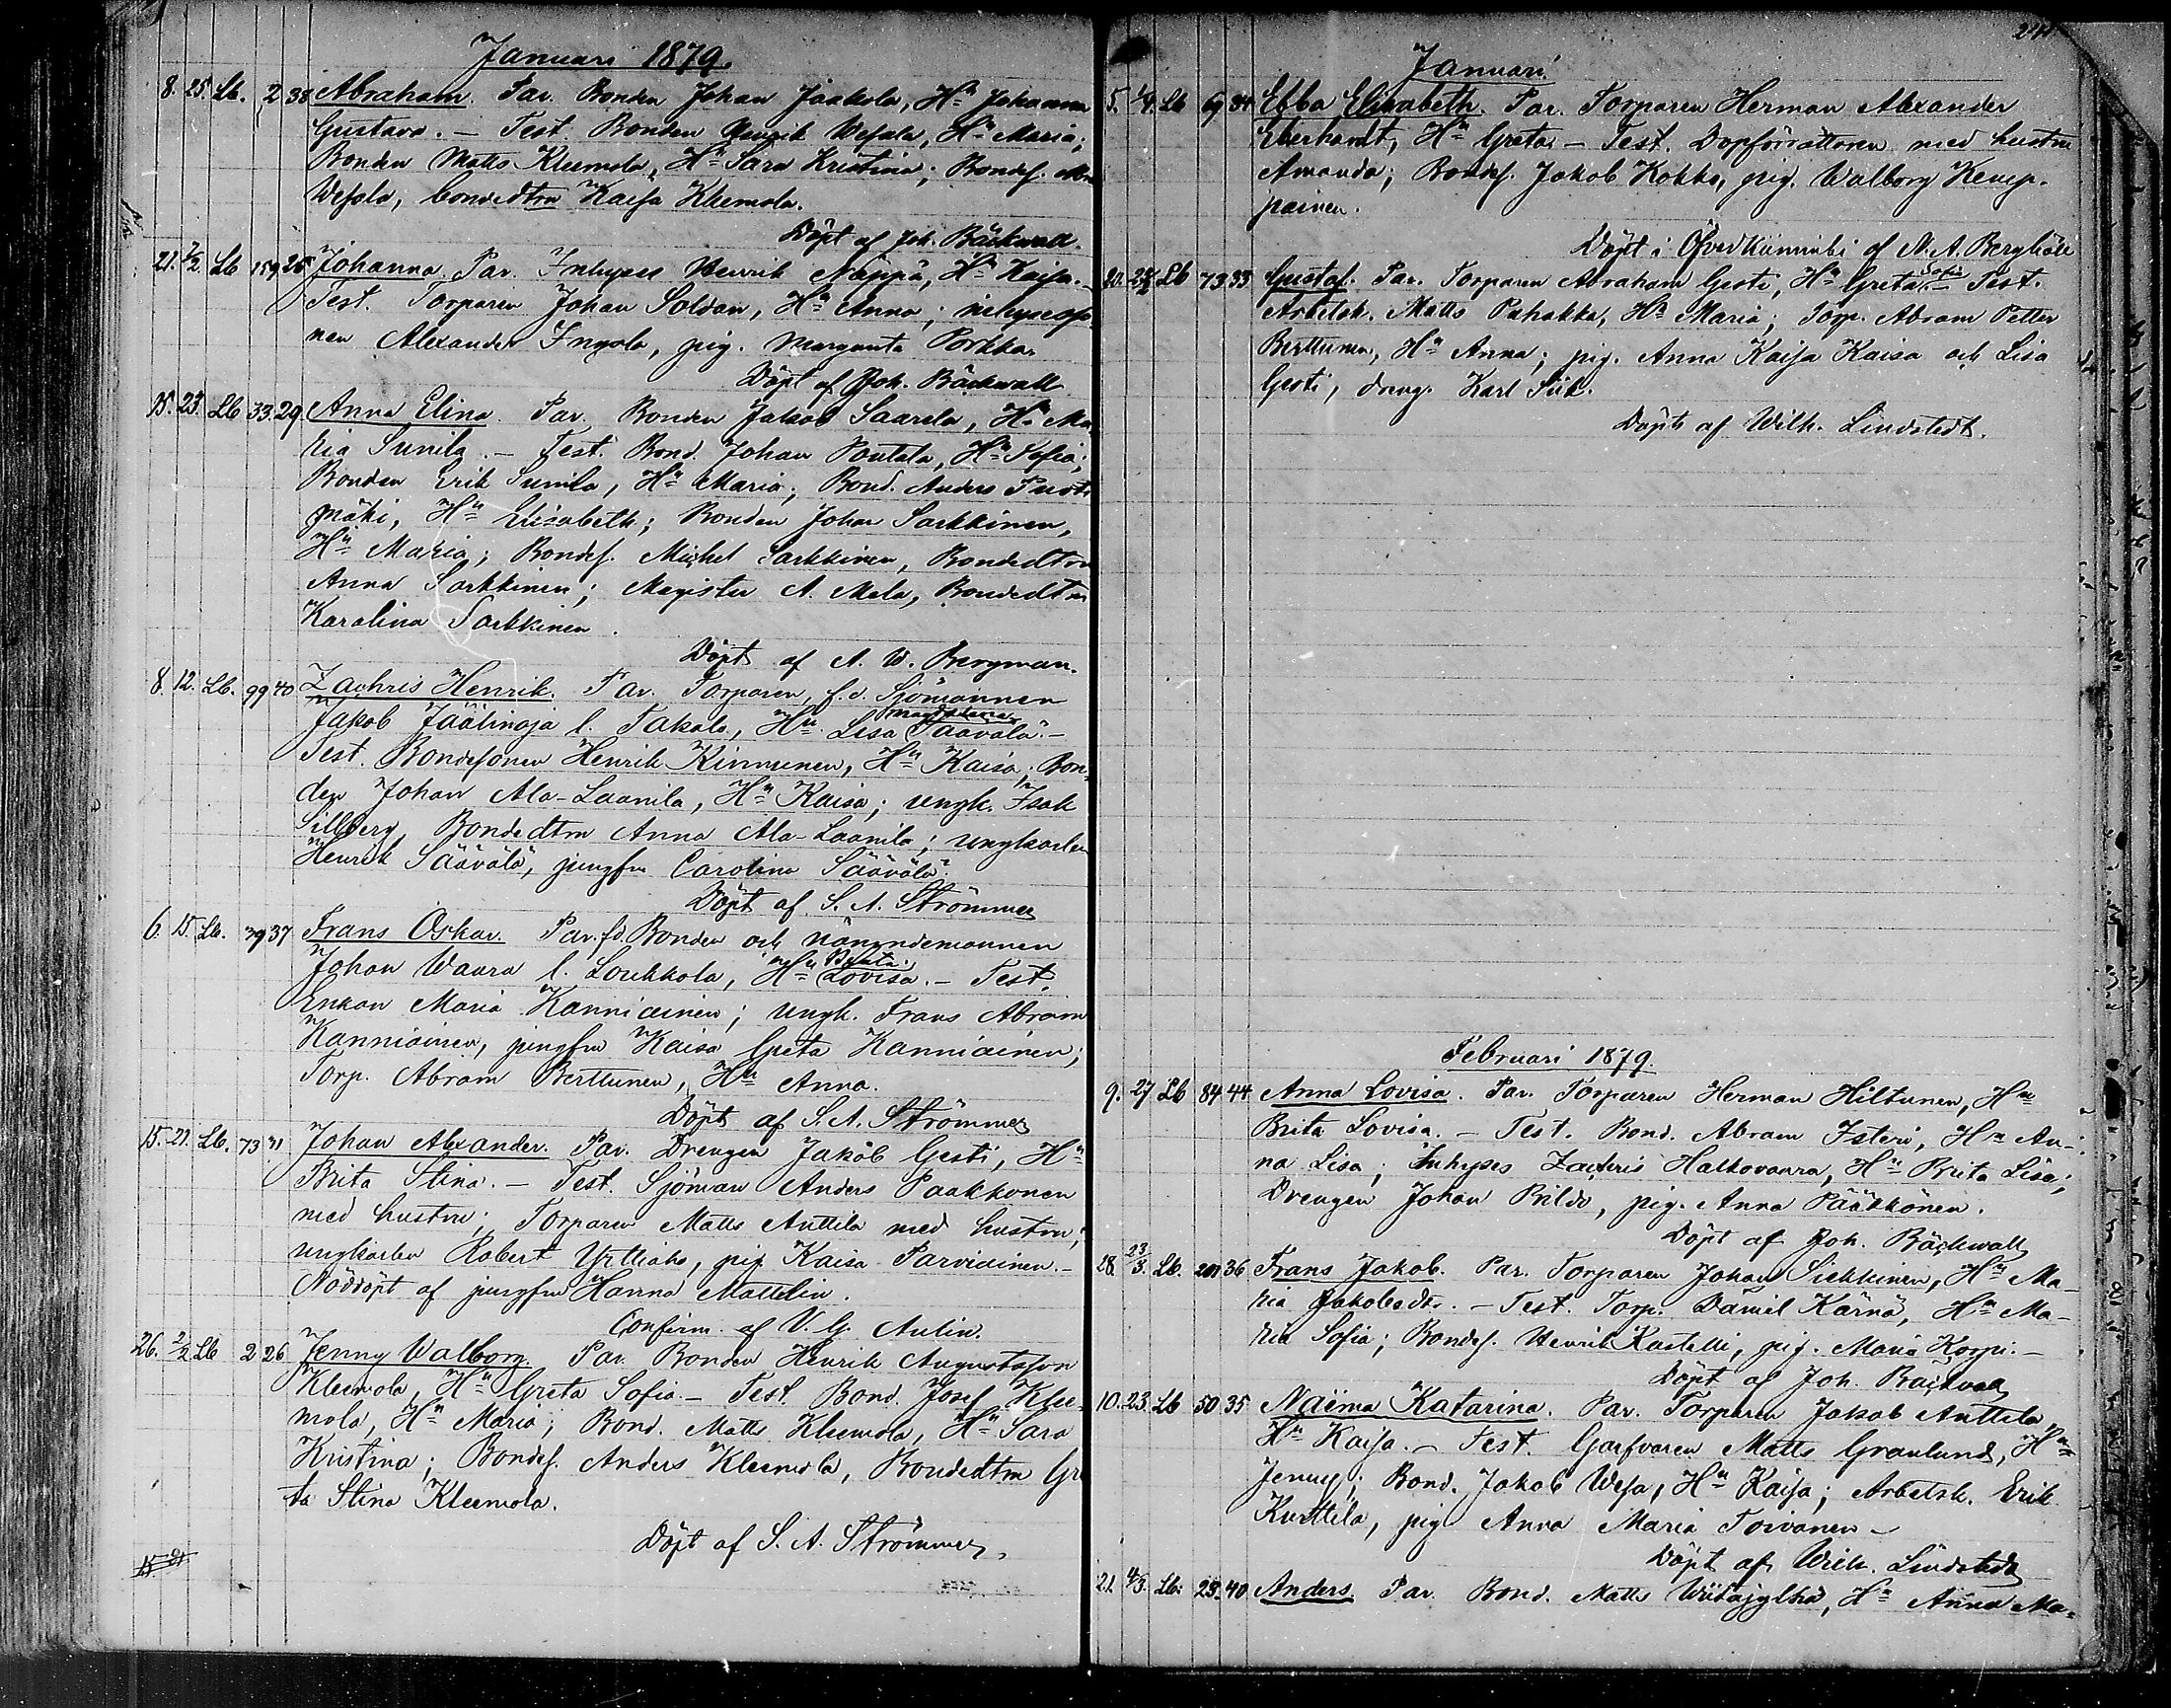 Januari 1879.
8. 25. Lb. 2 38 Abraham. Par. Bonden Johan Jaakola, Hu Johanna
Gustava. – Test. Bonden Henrik Wesala, Hu Maria;
Bonden Matts Kleemola, Hu Sara Kristina; Bondes.
Wesala, bondedtrn Kaisa Kleemola.
Döpt af Joh. Bäckwall.
21. 2/2 Lb 159 25 Johanna. Par. Inhyses Henrik Näppä, Hu Kaisa. –
Test. Torparen Johan Soldan, Hu Anna; inhysesso-
nen Alexander Ingola, pig. Margareta Porkka.
Döpt af Joh. Bäckwall
15. 23. Lb 33. 29 Anna Elina. Par. Bonden Jakob Saarela, Hu Ma
ria Sunila. – Test. Bond. Johan Pontala, Hu Sofia;
Bonden Erik Sunila, Hu Maria; Bond. Anders
mäki, Hu Elisabeth; Bonden Johan Sarkkinen,
Hu Maria; Bondes. Michel Sarkkinen, Bondedtrn
Anna Sarkkinen; Magister A. Mela, Bondedtrn
Karolina Sarkkinen.
Döpt af A. W. Bergman.
8. 12. Lb. 99 40 Zachris Henrik. Par. Torparen, f.d. Sjömannen
Jakob Jäälinoja l. Takalo, Hu Lisa Magdalena Säävälä. –
Test. Bondesonen Henrik Kinnunen, Hu Kaisa; Bon-
den Johan Ala-Laanila, Hu Kaisa; ungk. Isak
Sillberg, Bondedtrn Anna Ala-Laanila; ungkarlen
Henrik Säävälä, jungfru Carolina Säävälä.
Döpt af S. A. Strömmer
6. 15. Lb. 39 37 Frans Oskar. Par. fd. Bonden och nämndemannen
Johan Waara l. Loukkola, Hu Brita Lovisa. – Test.
Enkan Maria Kanniainen; ungk. Frans Abram
Kanniainen, jungfru Kaisa Greta Kanniainen;
Torp. Abram Berttunen, Hu Anna.
Döpt af S. A. Strömmer
15. 21. Lb. 73 31 Johan Alexander. Par. Drengen Jakob Gesti, Hu
Brita Stina. – Test. Sjöman Anders Paakkonen
med hustru; Torparen Matts Anttila med hustru;
ungkarlen Robert Yrttiaho, pig. Kaisa Parviainen. –
Nöddöpt af jungfru Hanna Mattelin.
Confirm. af V. G. Aulin.
26. 2/2 Lb 2 26 Jenny Walborg. Par. Bonden Henrik Augustsson
Kleemola, Hu Greta Sofia. – Test. Bond. Josef Klee-
mola, Hu Maria; Bond. Matts Kleemola, Hu Sara
Kristina; Bondes. Anders Kleemola, Bondedtrn Gre
ta Stina Kleemola.
Döpt af S. A. Strömmer.
Januari.
5. 1/4. Lb 69 34 Ebba Elisabeth. Par. Torparen Herman Alexander
Eberhardt, Hu Greta. – Test. Dopförrättaren med hustru
Amanda; Bondes. Jakob Kokko, pig. Walborg Kemp-
painen.
Döpt i Öfverkiiminki af N. A. Bergbäck
20. Lb 73 33 Gustaf. Par. Torparen Abraham Gesti, Hu Greta Sofia – Test.
Arbetsk. Matts Pahakka, Hu Maria; Torp. Abram Petter
Berttunen, Hu Anna; pig. Anna Kaisa Kaisa och Lisa
Gesti, dreng. Karl Siik.
Döpt af Wilh. Lindstedt.
Februari 1879.
9. 27 Lb 84 44 Anna Lovisa. Par. Torparen Herman Hiltunen, Hu
Brita Lovisa. – Test. Bond. Abram Isteri, Hu An-
na Lisa; Inhyses Zachris Halkovaara, Hu Brita Lisa;
Drengen Johan Bildo, pig. Anna Päätkönen.
Döpt af Joh. Bäckwall
28. 23/3. Lb. 201 36 Frans Jakob. Par. Torparen Johan Siekkinen, Hu Ma-
ria Jakobsdtr. – Test. Torp. Daniel Kärnä, Hu Ma-
ria Sofia; Bondes. Henrik Kastelli, pig. Maria Korpi. –
Döpt af Joh. Bäckwall
10. 23. Lb 50 35 Naima Katarina. Par. Torparen Jakob Anttila,
Hu Kaisa. – Test. Garfvaren Matts Granlund, Hu
Jenny; Bond. Jakob Wesa, Hu Kaisa; Arbetsk. Erik
Kurttila, pig. Anna Maria Toivanen –
Döpt af Wilh. Lindstedt
21. 4/3. Lb. 23. 40 Anders. Par. Bond. Matts Wiitajylhä, Hu Anna Ma-